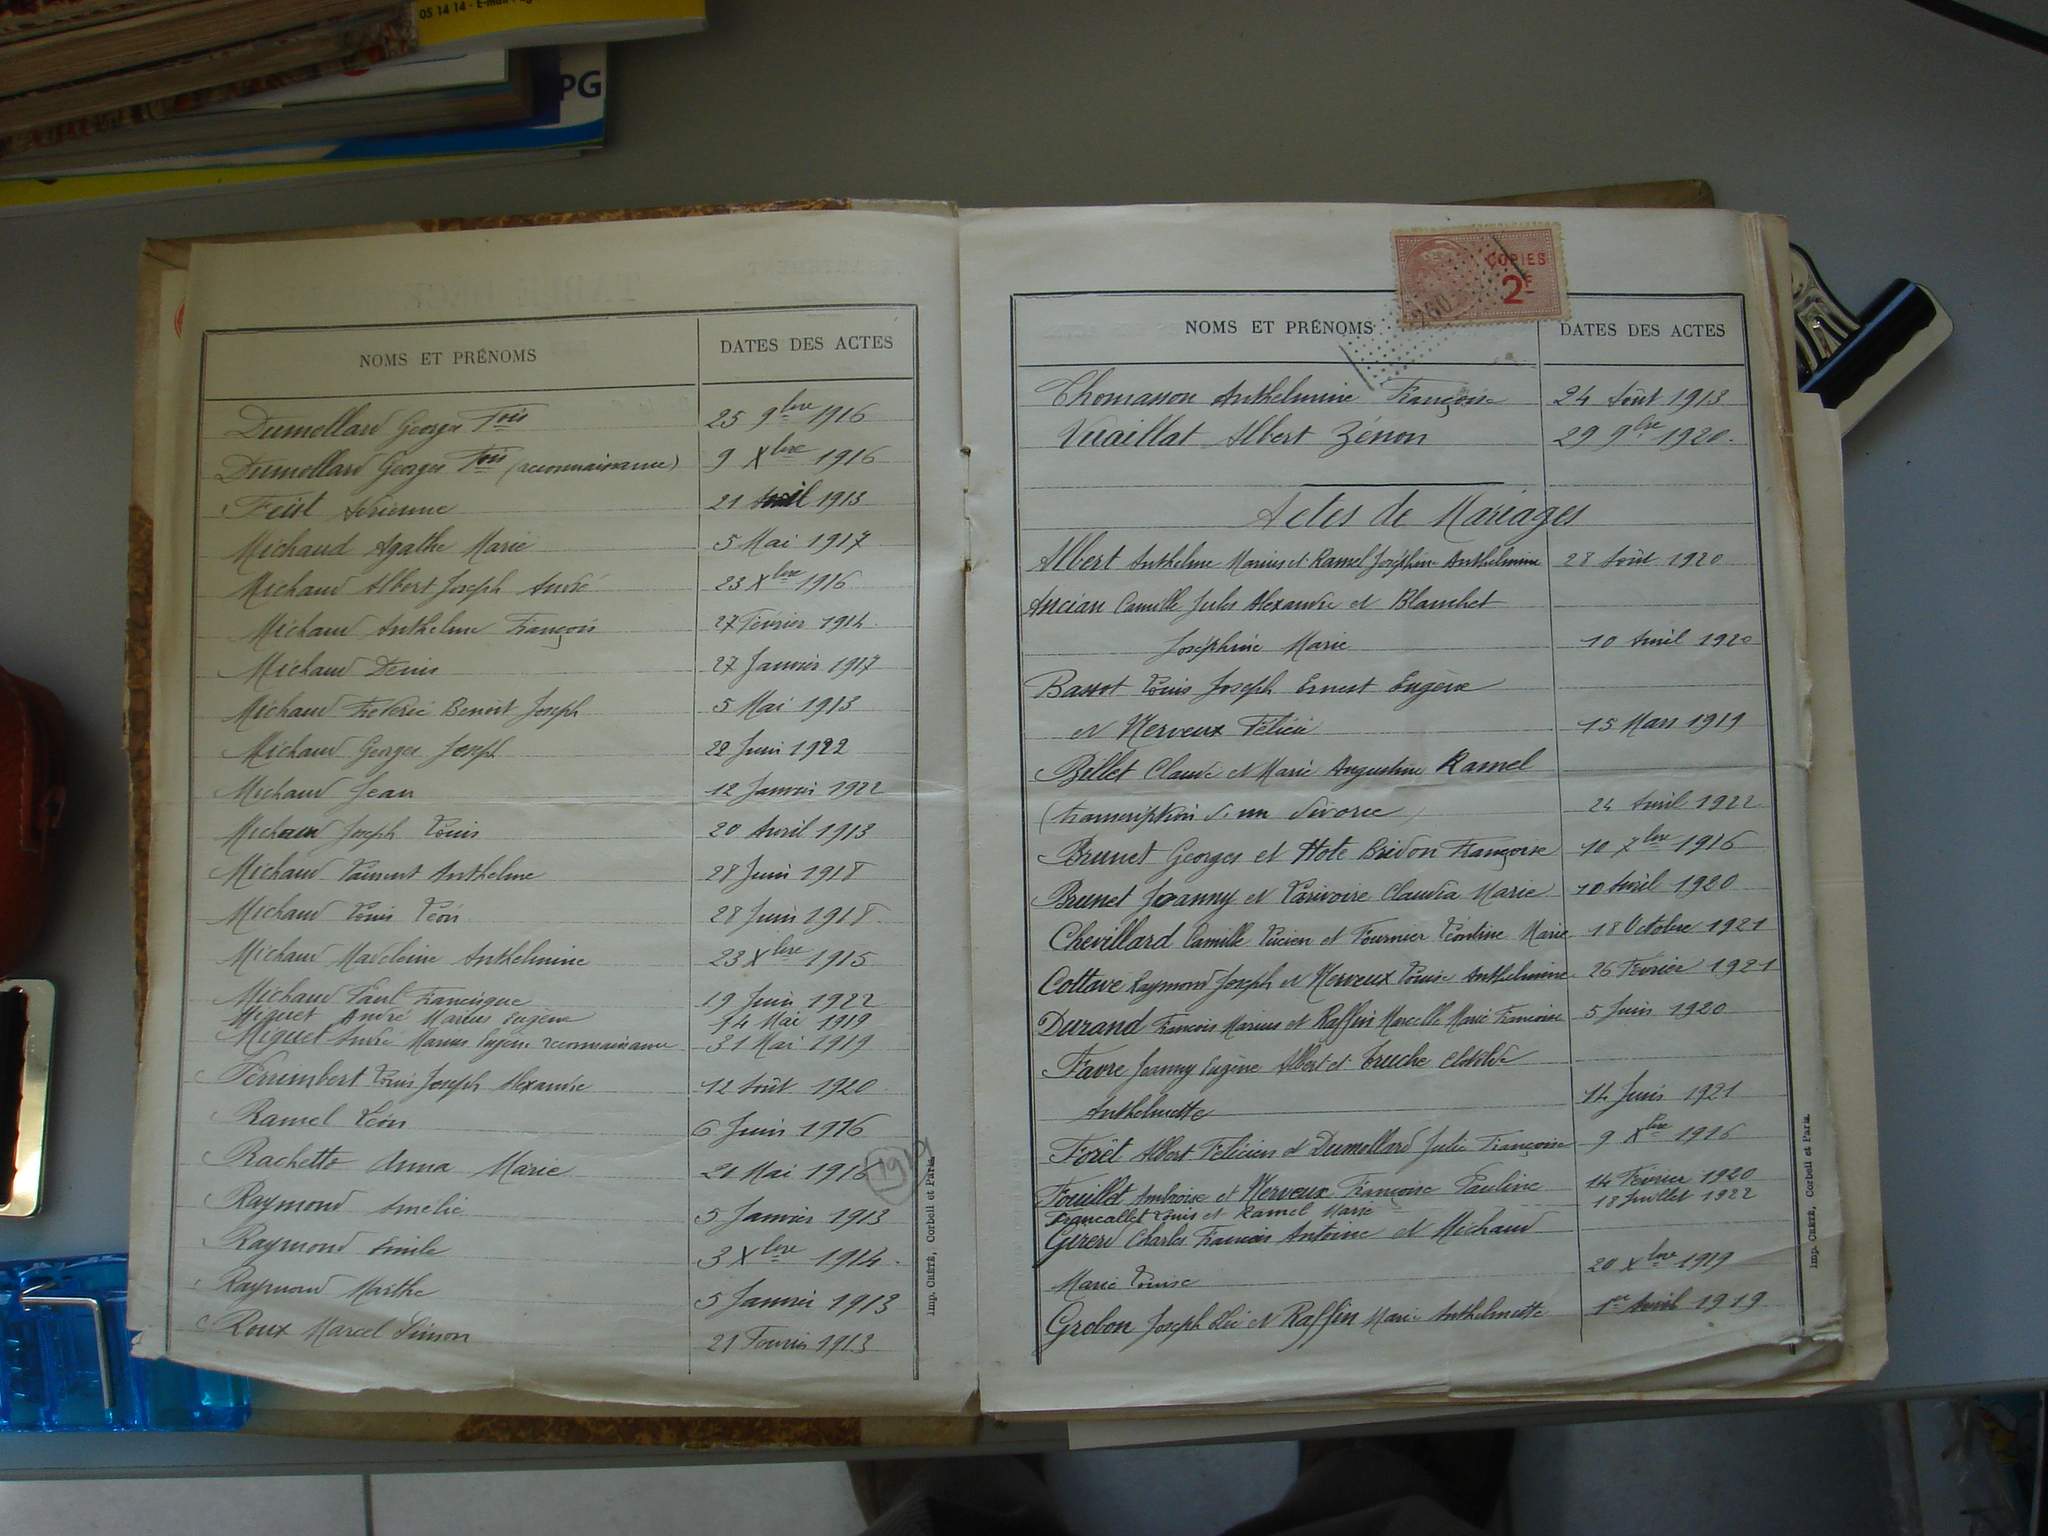 05 14 14 - E-mail
PG
NOMS ET PRÉNOMS
DATES DES ACTES
Dumollard Georges Fois 25 9bre 1916
Dumollard Georges Fois (reconnaissance) 9 Xbre 1916
Feist Adrienne 21 Avril 1913
Michaud Agathe Marie 5 Mai 1917
Michaud Albert Joseph André 23 Xbre 1916
Michaud Anthelme François 27 Février 1914
Michaud Denis 27 Janvier 1917
Michaud Frédéric Benoit Joseph 5 Mai 1913
Michaud Georges Joseph 22 Juin 1922
Michaud Jean 12 Janvier 1922
Michaud Joseph Louis 20 Avril 1913
Michaud Laurent Anthelme 28 Juin 1918
Michaud Louis Léon 28 Juin 1918
Michaud Madeleine Anthelmine 23 Xbre 1915
Michaud Paul Francisque 19 Juin 1922
Miguet André Marius Eugène 14 Mai 1919
Miguet André Marius Eugène reconnaissance 31 Mai 1919
Perrimbert Louis Joseph Alexandre 12 Août 1920
Ramel Léon 6 Juin 1916
Rachetto Anna Marie 21 Mai 1916 1919
Raymond Amélie 5 Janvier 1913
Raymond Emile 3 Xbre 1914
Raymond Marthe 5 Janvier 1913
Roux Marcel Simon 21 Février 1913
Imp. CRÉTÉ, Corbeil et Paris.
COPIES
2F
260
NOMS ET PRÉNOMS
DATES DES ACTES
Thomasson Anthelmine Françoise 24 Août 1913
Vuaillat Albert Zénon 29 9bre 1920
Actes de Mariages
Albert Anthelme Marius et Ramel Joséphine Anthelmine 28 Août 1920
Ancian Camille Jules Alexandre et Blanchet
Joséphine Marie 10 Avril 1920
Bassot Louis Joseph Ernest Eugène
et Nerveux Félicie 15 Mars 1919
Billet Claude et Marie Augustine Ramel
(transcription d'un divorce) 24 Avril 1922
Brunet Georges et Hote Bridon Françoise 10 7bre 1916
Brunet Joanny et Larivoire Claudia Marie 10 Avril 1920
Chevillard Camille Lucien et Fournier Léontine Marie 18 Octobre 1921
Cottave Raymond Joseph et Nerveux Louise Anthelmine 26 Février 1921
Durand François Marius et Raffin Marcelle Marie Françoise 5 Juin 1920
Favre Joanny Eugène Albert et Truche Clotilde
Anthelmette 14 Juin 1921
Forêt Albert Félicien et Dumollard Julie Françoise 9 Xbre 1916
Fouillet Ambroise et Nerveux Françoise Pauline 14 Février 1920
Francallet Louis et Ramel Marie 18 Juillet 1922
Girerd Charles François Antoine et Michaud
Marie Louise 20 Xbre 1919
Grobon Joseph et Raffin Marie Anthelmette 1er Avril 1919
Imp. CRÉTÉ, Corbeil et Paris.